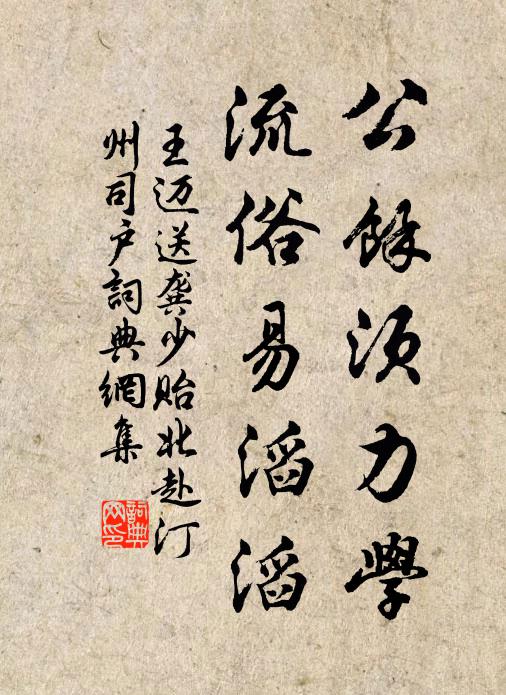 公餘須力學
流俗易滔滔
王迈送龚少贻北赴汀
州司户詞典網集
詞典
网印